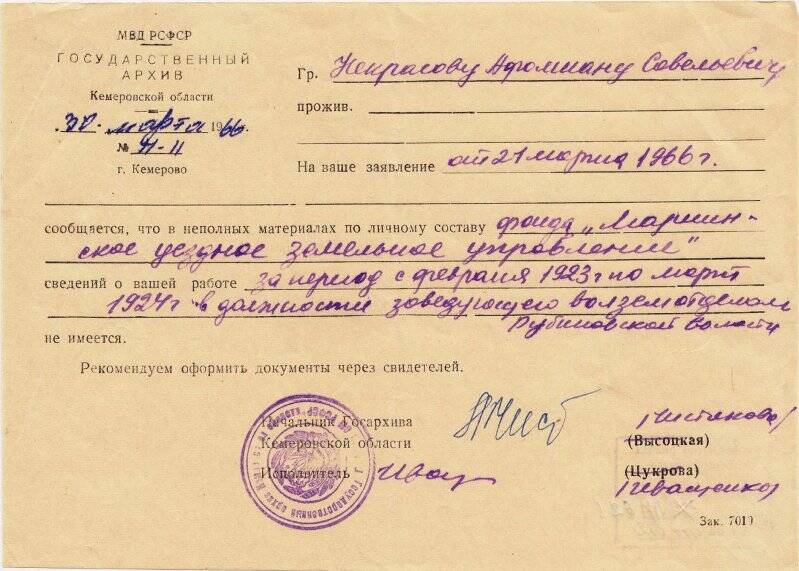 МВД РСФСР
ГОСУДАРСТВЕННЫЙ
АРХИВ
Кемеровской области
30. марта 1966.
№ Н-11
г. Кемерово
Гр. Некрасову Афомиану Савельевичу
прожив.
На ваше заявление от 21 марта 1966 г.
сообщается, что в неполных материалах по личному составу фонда „Мариин-
ское уездное земельное управление"
сведений о вашей работе за период с февраля 1923 г по март
1924 г в должности заведующего волземотделом
Рубиновской волости
не имеется.
Рекомендуем оформить документы через свидетелей.
Начальник Госархива
Кемеровской области
(Чистякова)
(Высоцкая)
Исполнитель
(Цукрова)
(Иващенко)
Зак. 7019